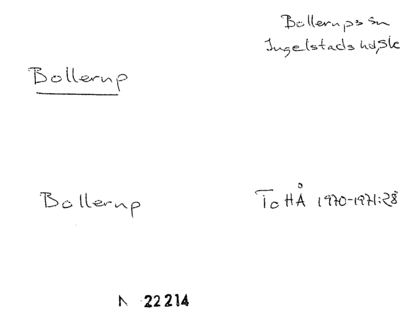 Bollerups sn
Ingelstads hd, Sk
Bollerup
Bollerup
ToHÅ 1970-1971:28
N 22214